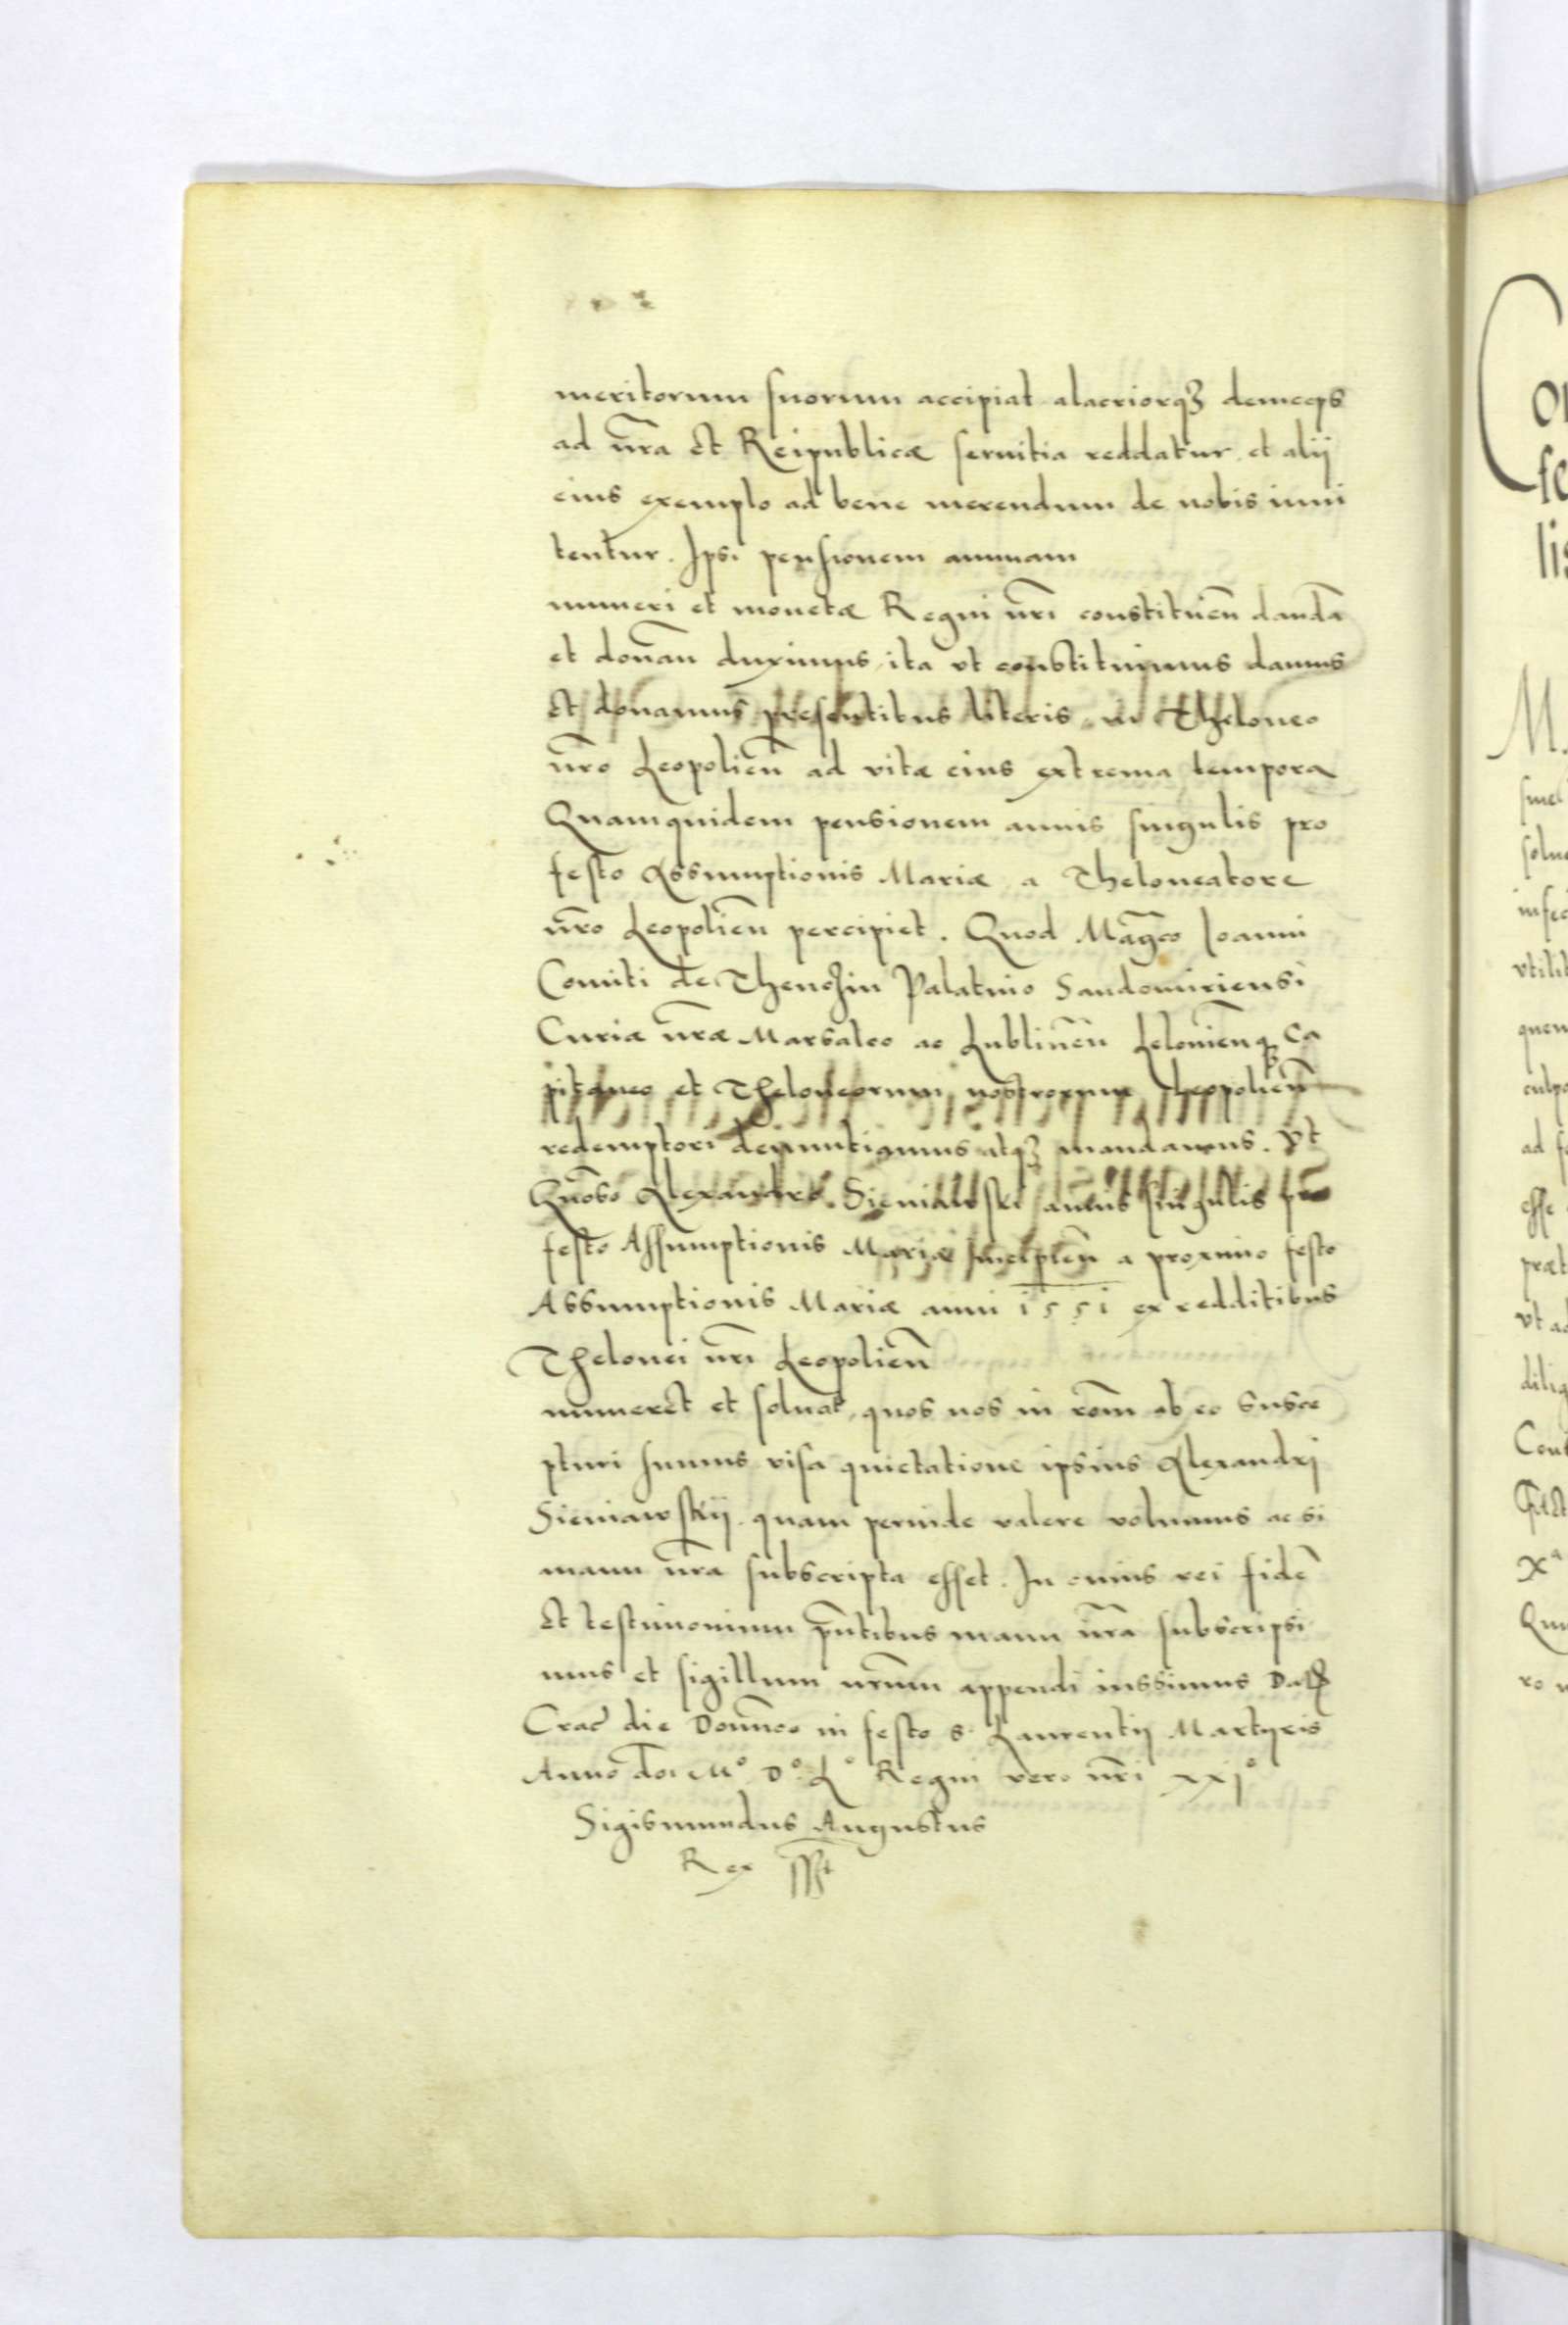 meritorum suorum accipiat alacriorq₃ deinceps
ad nr̄a et Reipublicæ seruitia reddatur et alij
eius exemplo ad bene merendum de nobis inui
tentur. Ipsi pensionem annuam
numeri et monetæ Regni nr̄i constituen̄ dandā
et donan̄ duximus ita vt constituimus damus
et donamus præsentibus literis in Theloneo
nr̄o Leopolien̄ ad vitæ eius extrema tempora
Quamquidem pensionem annis singulis pro
festo Assumptionis Mariæ a Theloneatore
nr̄o Leopolien̄ percipiet. Quod Maḡco Joanni
Comiti de Thenczin Palatino Sandomiriensi
Curiæ nr̄æ Marsalco ac Lublinen̄ Lelovien̄q₃ Ca
pitaneo et Theloneorum nostrorum Leopolien̄
redemptori denuntiamus atq₃ mandamus. Vt
Gn̄oso Alexandro Sieniawski annis singulis pro
festo Assumptionis Mariæ a proximo festo
Assumptionis Mariæ anni 1551 ex redditibus
Thelonei nr̄i Leopolien̄
numeret et soluat, quos nos in rōm ab eo susce
pturi sumus visa quietatione ipsius Alexandri
Sieniawskij quam perinde valere volumus ac si
manu nr̄a subscripta esset. In cuius rei fidē
et testimonium pn̄tibus manu nr̄a subscripsi
mus et sigillum nr̄um appendi iussimus Dat
Crac̄ die Domīco in festo S. Laurentij Martyris
Anno do͞i M° D° L° Regni vero nr̄i xxj°
Sigismundus Augustus
Rex sst